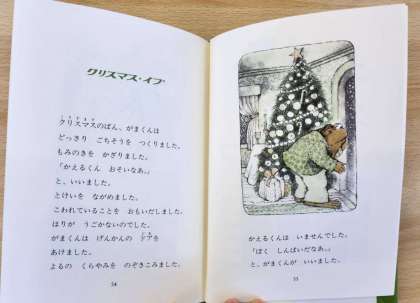 クリスマス・イブ
クリスマスのばん、がまくんは
どっさり ごちそうを つくりました。
もみのきを かざりました。
「かえるくん おそいなあ。」
と、いいました。
とけいを ながめました。
こわれていることを おもいだしました。
はりが うごかないのでした。
がまくんは げんかんの ドアを
あけました。
よるの くらやみを のぞきこみました。
54
かえるくんは いませんでした。
「ぼく しんぱいだなあ。」
と、がまくんが いいました。
55